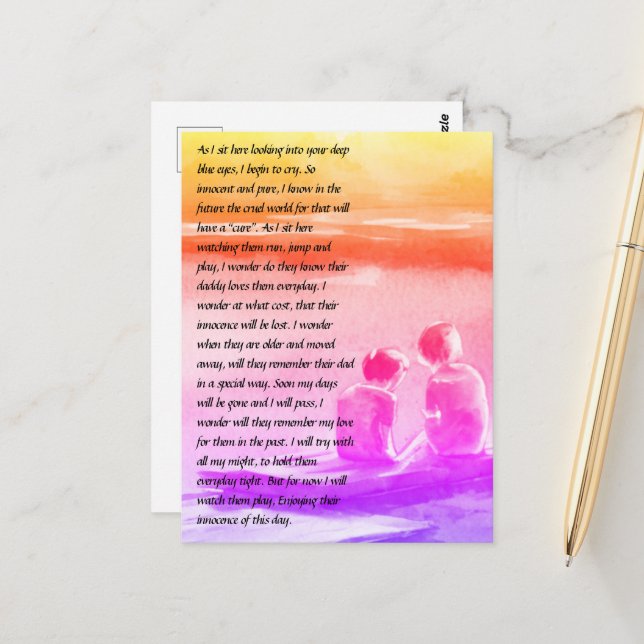 zzle
As I sit here looking into your deep
blue eyes, I begin to cry. So
innocent and pure, I know in the
future the cruel world for that will
have a "cure". As I sit here
watching them run, jump and
play, I wonder do they know their
daddy loves them everyday. I
wonder at what cost, that their
innocence will be lost. I wonder
when they are older and moved
away, will they remember their dad
in a special way. Soon my days
will be gone and I will pass, I
wonder will they remember my love
for them in the past. I will try with
all my might, to hold them
everyday tight. But for now I will
watch them play, Enjoying their
innocence of this day.